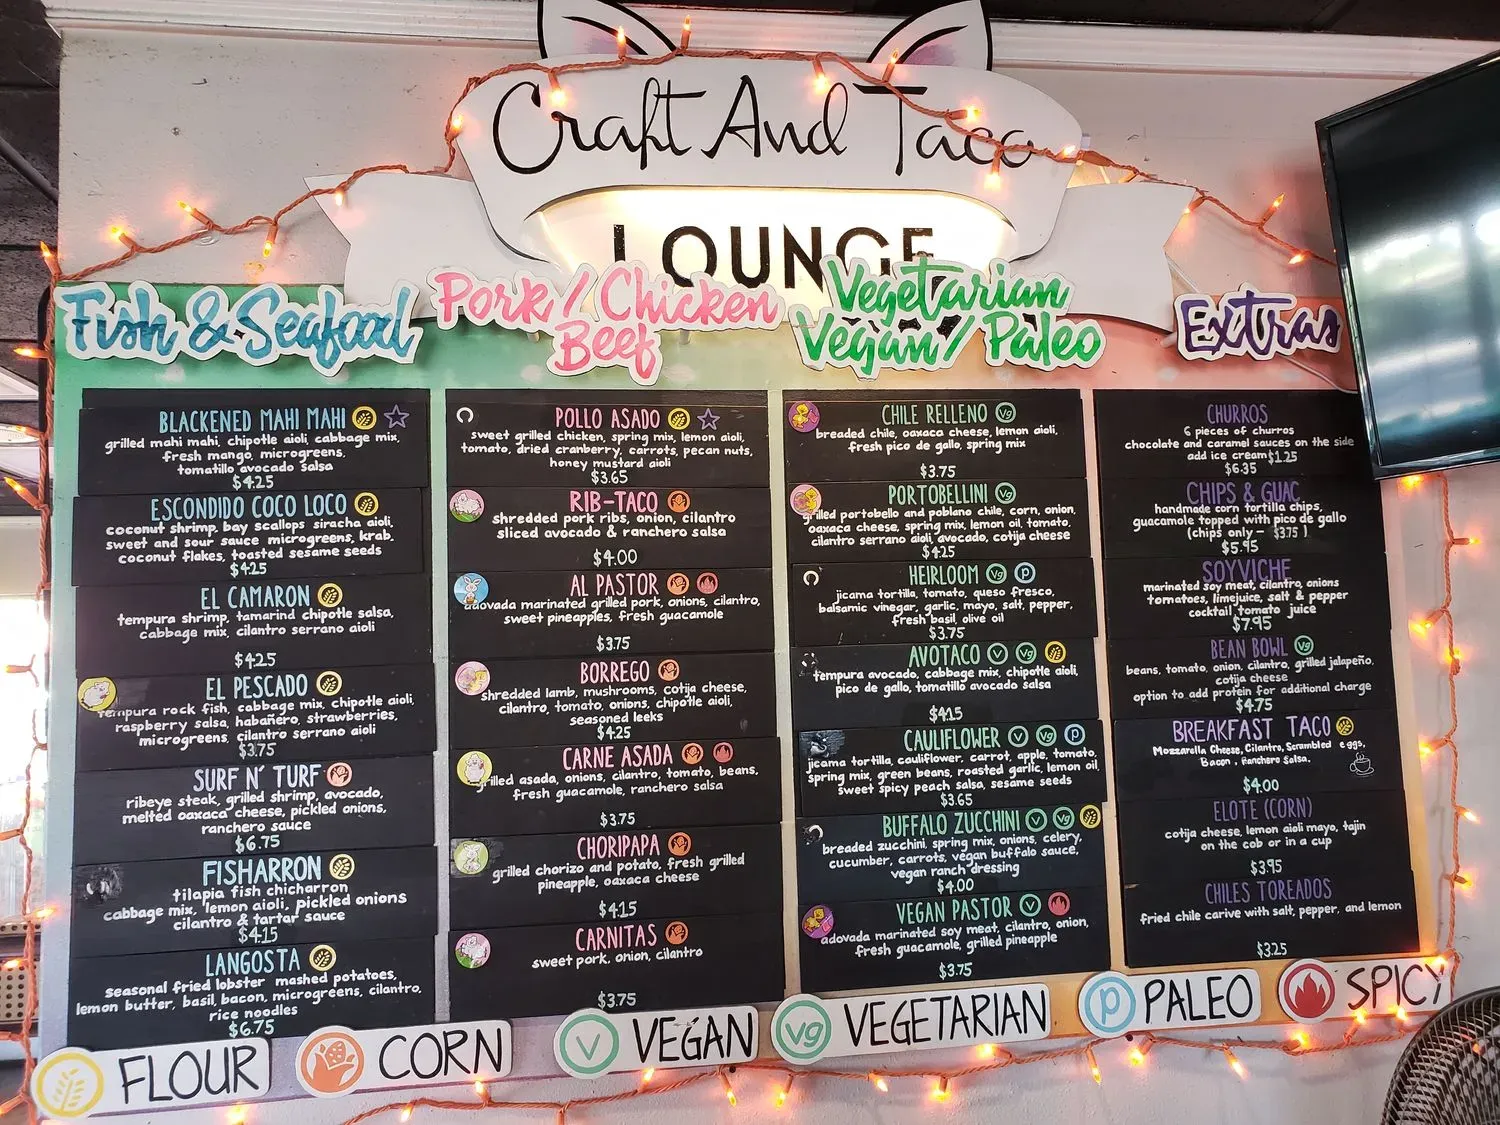 Craft And Taco
LOUNGE
Fish & Seafood
BLACKENED MAHI MAHI
grilled mahi mahi, chipotle aioli, cabbage mix,
fresh mango, microgreens,
tomatillo avocado salsa
$4.25
ESCONDIDO COCO LOCO
coconut shrimp, bay scallops siracha aioli,
sweet and sour sauce microgreens, krab,
coconut flakes, toasted sesame seeds
$4.25
EL CAMARON
tempura shrimp, tamarind chipotle salsa,
cabbage mix, cilantro serrano aioli
$4.25
EL PESCADO
tempura rock fish, cabbage mix, chipotle aioli,
raspberry salsa, habañero, strawberries,
microgreens, cilantro serrano aioli
$3.75
SURF N' TURF
ribeye steak, grilled shrimp, avocado,
melted oaxaca cheese, pickled onions,
ranchero sauce
$6.75
FISHARRON
tilapia fish chicharron
cabbage mix, lemon aioli, pickled onions
cilantro & tartar sauce
$4.15
LANGOSTA
seasonal fried lobster mashed potatoes,
lemon butter, basil, bacon, microgreens, cilantro,
rice noodles
$6.75
Pork / Chicken
Beef
POLLO ASADO
sweet grilled chicken, spring mix, lemon aioli,
tomato, dried cranberry, carrots, pecan nuts,
honey mustard aioli
$3.65
RIB-TACO
shredded pork ribs, onion, cilantro
sliced avocado & ranchero salsa
$4.00
AL PASTOR
adovada marinated grilled pork, onions, cilantro,
sweet pineapples, fresh guacamole
$3.75
BORREGO
shredded lamb, mushrooms, cotija cheese,
cilantro, tomato, onions, chipotle aioli,
seasoned leeks
$4.25
CARNE ASADA
grilled asada, onions, cilantro, tomato, beans,
fresh guacamole, ranchero salsa
$3.75
CHORIPAPA
grilled chorizo and potato, fresh grilled
pineapple, oaxaca cheese
$4.15
CARNITAS
sweet pork, onion, cilantro
$3.75
Vegetarian
Vegan / Paleo
CHILE RELLENO Vg
breaded chile, oaxaca cheese, lemon aioli,
fresh pico de gallo, spring mix
$3.75
PORTOBELLINI Vg
grilled portobello and poblano chile, corn, onion,
oaxaca cheese, spring mix, lemon oil, tomato,
cilantro serrano aioli, avocado, cotija cheese
$4.25
HEIRLOOM Vg P
jicama tortilla, tomato, queso fresco,
balsamic vinegar, garlic, mayo, salt, pepper,
fresh basil, olive oil
$3.75
AVOTACO V Vg
tempura avocado, cabbage mix, chipotle aioli,
pico de gallo, tomatillo avocado salsa
$4.15
CAULIFLOWER V Vg P
jicama tortilla, cauliflower, carrot, apple, tomato,
spring mix, green beans, roasted garlic, lemon oil,
sweet spicy peach salsa, sesame seeds
$3.65
BUFFALO ZUCCHINI V Vg
breaded zucchini, spring mix, onions, celery,
cucumber, carrots, vegan buffalo sauce,
vegan ranch dressing
$4.00
VEGAN PASTOR V
adovada marinated soy meat, cilantro, onion,
fresh guacamole, grilled pineapple
$3.75
Extras
CHURROS
6 pieces of churros
chocolate and caramel sauces on the side
add ice cream $1.25
$6.35
CHIPS & GUAC
handmade corn tortilla chips,
guacamole topped with pico de gallo
(chips only - $3.75 )
$5.95
SOYVICHE
marinated soy meat, cilantro, onions
tomatoes, limejuice, salt & pepper
cocktail tomato juice
$7.95
BEAN BOWL Vg
beans, tomato, onion, cilantro, grilled jalapeño,
cotija cheese
option to add protein for additional charge
$4.75
BREAKFAST TACO
Mozzarella Cheese, Cilantro, Scrambled eggs,
Bacon, Ranchero Salsa.
$4.00
ELOTE (CORN)
cotija cheese, lemon aioli mayo, tajin
on the cob or in a cup
$3.95
CHILES TOREADOS
fried chile carive with salt, pepper, and lemon
$3.25
FLOUR
CORN
V VEGAN
vg VEGETARIAN
P PALEO
SPICY